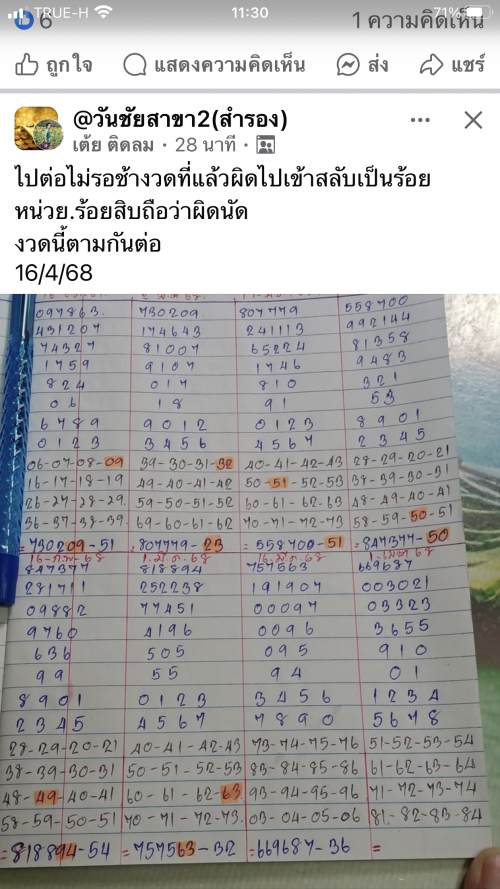 TRUE-H 11:30 71%
6 1 ความคิดเห็น
ถูกใจ แสดงความคิดเห็น ส่ง แชร์
@วันชัยสาขา2(สำรอง)
เต้ย ติดลม · 28 นาที ·
ไปต่อไม่รอช้างวดที่แล้วผิดไปเข้าสลับเป็นร้อย
หน่วย.ร้อยสิบถือว่าผิดนัด
งวดนี้ตามกันต่อ
16/4/68
097863. 730209. 807779 558700
431207 174643 241113 992144
74327 81007 65224 81358
1759 9107 1746 9483
824 017 810 321
06 18 91 53
6789 9012 0123 8901
0123 3456 4567 2345
06-07-08-09 39-30-31-32 40-41-42-43 28-29-20-21
16-17-18-19 49-40-41-42 50-51-52-53 38-39-30-31
26-27-28-29 59-50-51-52 60-61-62-63 48-49-40-41
36-37-38-39 69-60-61-62 70-71-72-73 58-59-50-51
=730209-51 =807779-23 =558700-51 =847377-50
16-ก.พ-68 1.มี.ค.68 16.มี.ค.68 1-เม.ย 68
847377 818894 757563 669687
281711 252238 191907 003021
09882 77451 00097 03323
9760 4196 0096 3655
636 505 095 910
99 55 94 01
8901 0123 3456 1234
2345 4567 7890 5678
28-29-20-21 40-41-42-43 73-74-75-76 51-52-53-54
38-39-30-31 50-51-52-53 83-84-85-86 61-62-63-64
48-49-40-41 60-61-62-63 93-94-95-96 71-72-73-74
58-59-50-51 70-71-72-73 03-04-05-06 81-82-83-84
=818894-54 =757563-32 =669687-36 =